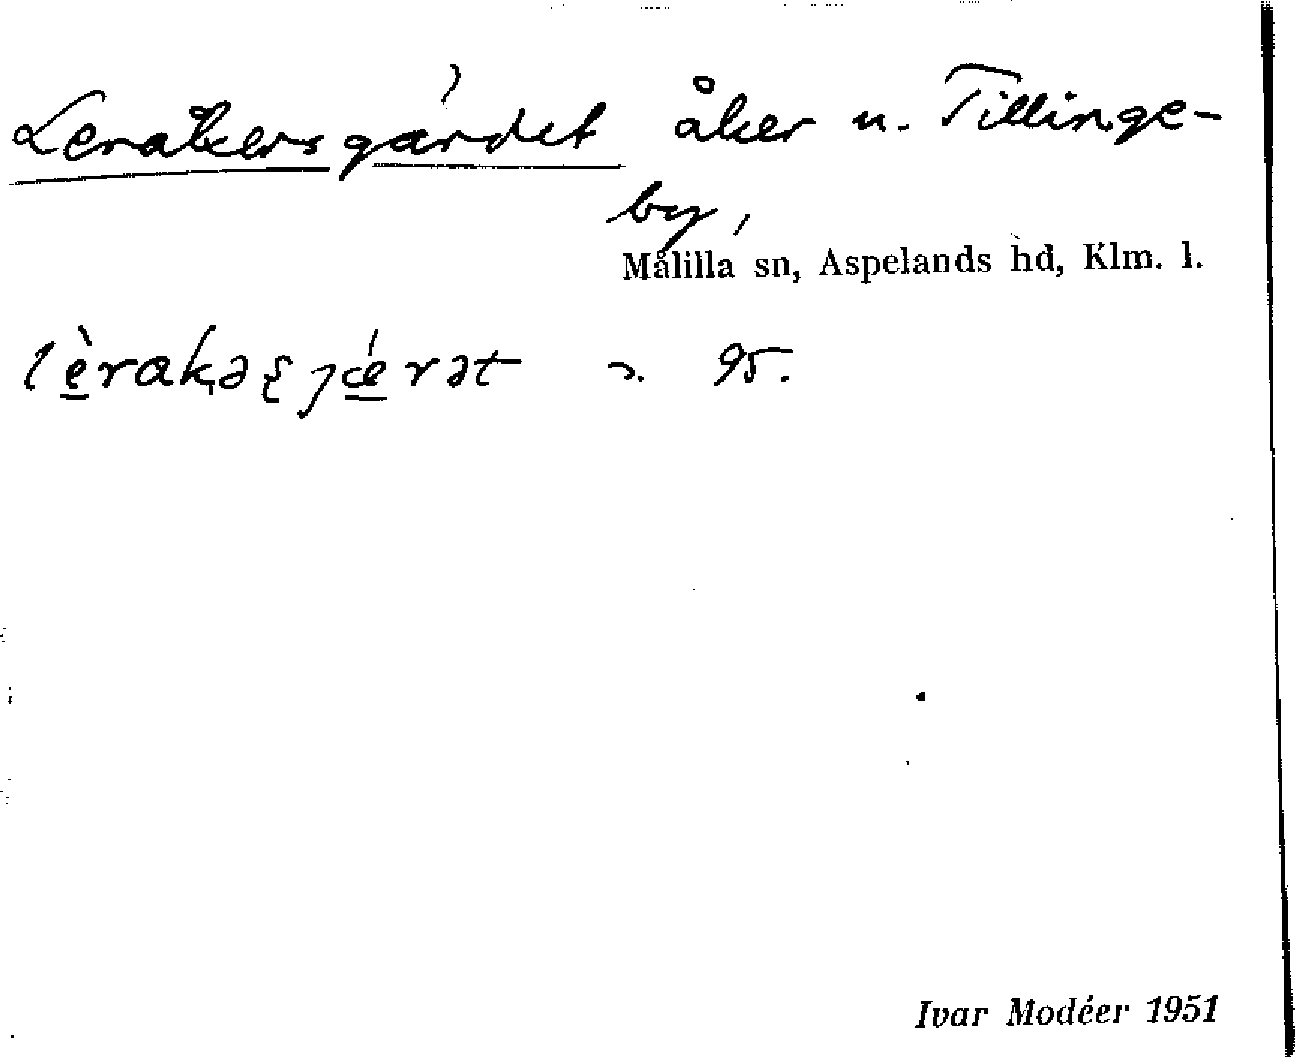 Leråkersgärdet åker u. Tillinge-
by,
Målilla sn, Aspelands hd, Klm. l.
95.
Ivar Modéer 1951